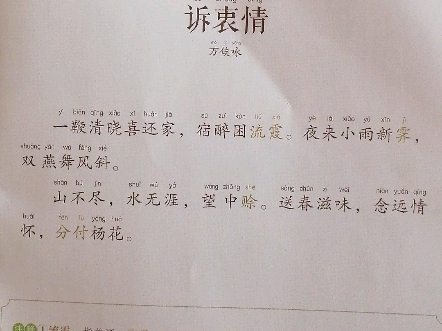 诉衷情
万俟咏
yì biān qīng xiǎo xǐ huán jiā
一鞭清晓喜还家，宿醉困流霞。夜来小雨新霁，
shuāng yàn wǔ fēng xié
双燕舞风斜。
shān bú jìn shuǐ wú yá wàng zhōng shē sòng chūn zī wèi niàn yuǎn qíng
山不尽，水无涯，望中赊。送春滋味，念远情
huái fēn fù yáng huā
怀，分付杨花。